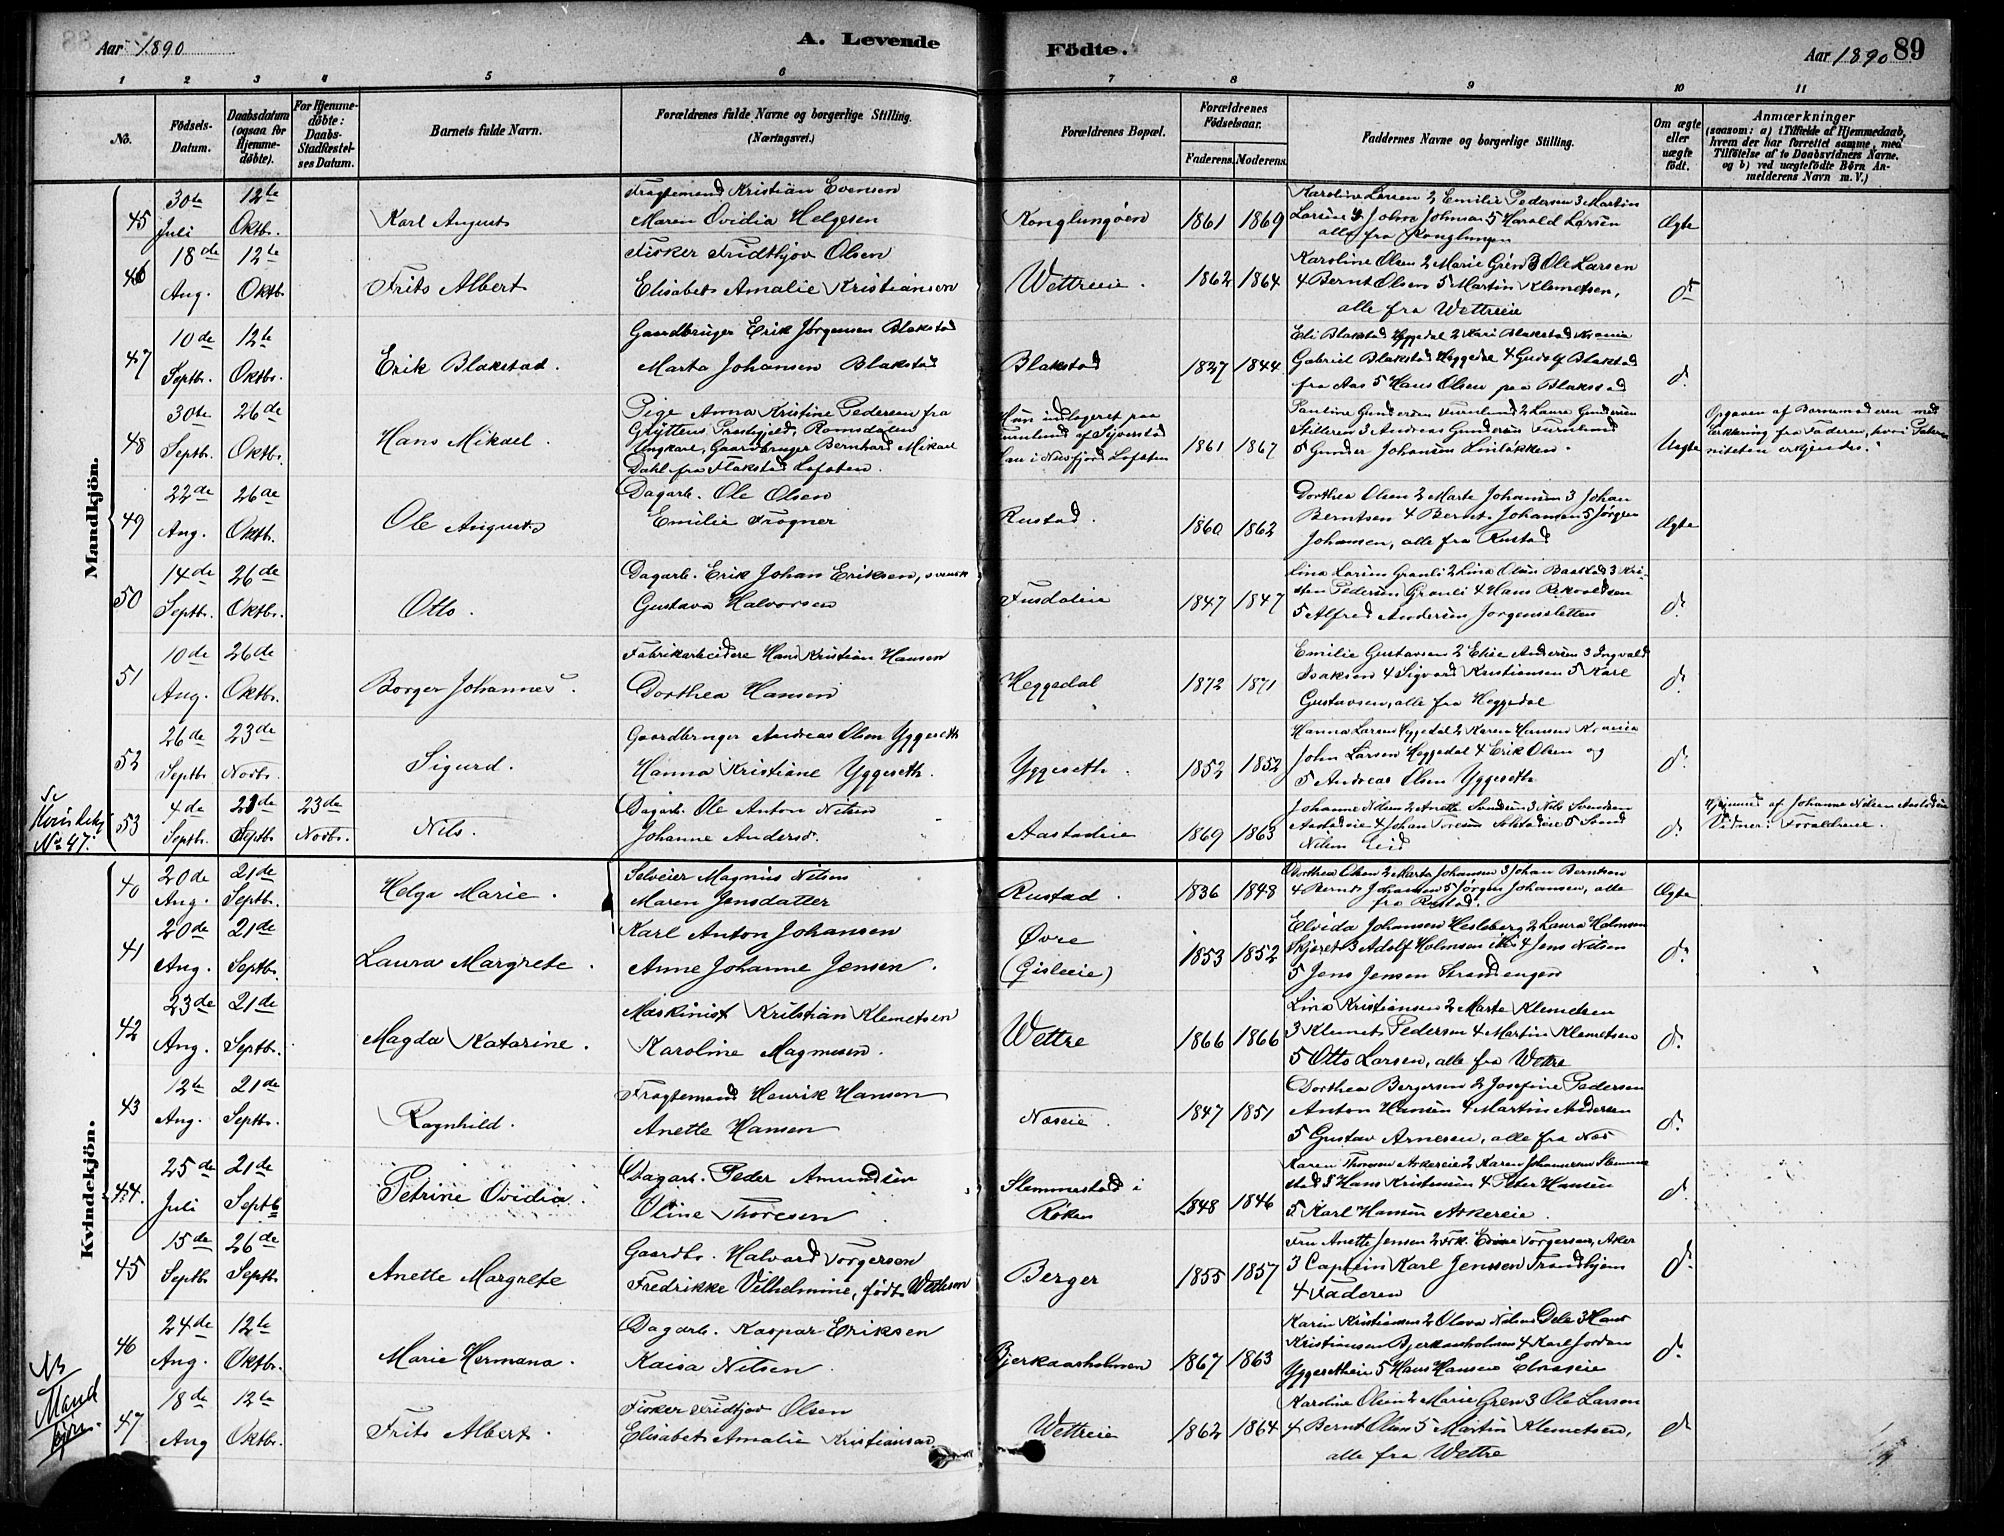 Aar 1890
A. Levende
Födte.
Aar 1890 89
1 2 3 4 5 6 7 8 9 10 11
No.
Födsels-
Datum.
Daabsdatum
(ogsaa for
Hjemme-
döbte).
For Hjemme-
döbte:
Daabs-
Stadfæstel-
ses Datum.
Barnets fulde Navn.
Forældrenes fulde Navne og borgerlige Stilling.
(Næringsvei.)
Forældrenes Bopæl.
Forældrenes
Födselsaar.
Faderens. Moderens.
Faddernes Navne og borgerlige Stilling.
Om ægte
eller
uægte
födt.
Anmærkninger
(saasom: a) i Tilfælde af Hjemmedaab,
hvem der har forrettet samme, med
Tilföielse af to Daabsvidners Navne.
og b) ved uægtefödte Börn An-
melderens Navn m. V.)
Mandkjön.
45
30te Juli
12te Oktbr.
Karl August
Fragtemand Kristian Evensen
Maren Ovidia Helgesen
Konglungöen
1861 1869
Karoline Larsen 2 Emilie Pedersen 3 Martin
Larsen 4 John Johnsen 5 Harald Larsen
alle fra Konglungen
Ægte
46
18de Aug.
12te Oktb.
Frits Albert
Fisker Fridthjov Olsen
Elisabet Amalie Kristiansen
Wettreie.
1862 1864
Karoline Olsen 2 Marie Gren 3 Ole Larsen
4 Bernt Olsen 5 Martin Klemetsen,
alle fra Wettreie
do
47
10de Septbr.
12te Oktbr.
Erik Blakstad.
Gaardbruger Erik Jørgensen Blakstad
Marta Johansen Blakstad
Blakstad
1837 1844
Eli Blakstad Heggedal 2 Kari Blakstad Krania
Gabriel Blakstad Heggedal 4 Gudolf Blakstad
fra Aas 5 Hans Olsen paa Blakstad
do.
48
30te Septbr.
26de Oktbr.
Hans Mikael.
Pige Anna Kristine Pedersen fra
Gryttens Præstegjeld, Romsdalen
Ungkarl, Gaardbruger Bernhard Mikael
Dahl fra Flakstad Lofoten.
Hun indlogeret paa
Furulund af Syverstad
Han i Nusfjord Lofoten
1861 1867
Pauline Gundersen Furulund 2 Laura Gundersen
3 Andreas Gundersen Furulund
5 Gunder Johansen Linløkken.
Uægte
Opgaven af Barnemoderen med
Erklæring fra Faderen, hvori Pater-
niteten erkjendes.
49
22de Aug.
26de Oktbr.
Ole August
Dagarb. Ole Olsen
Emilie Frogner
Rustad.
1860 1862
Dorthea Olsen 2 Marte Johansen 3 Johan
Berntsen 4 Bernt Johansen 5 Jørgen
Johansen, alle fra Rustad
Ægte
50
14de Septbr.
26de Oktbr.
Otto.
Dagarb. Erik Johan Eriksen, svensk
Gustava Halvorsen
Fusdaleie
1847 1847
Lina Larsen Granli 2 Lina Olsen Baastad 3 Kri-
sten Pedersen Granli 4 Hans Rikvoldsen
5 Alfred Andersen Jørgensletten
do.
51
10de Aug.
26de Oktbr.
Borger Johannes.
Fabrikarbeidere Hans Kristian Hansen
Dorthea Hansen
Heggedal
1872 1871
Emilie Gustavsen 2 Elise Andersen 3 Ingvald
Isaksen 4 Sigvard Kristiansen 5 Karl
Gustavsen, alle fra Heggedal
do.
52
26de Septbr.
23de Novbr.
Sigurd.
Gaardbruger Andreas Olsen Yggeseth
Hanna Kristiane Yggeseth.
Yggeseth.
1852 1852
Hanna Larsen Heggedal 2 Karen Hansen Krania
John Larsen Heggedal 4 Erik Olsen og
5 Andreas Olsen Yggeseth
do.
Se
Kvindekj
No 47.
53
4de Septbr.
21de Septbr.
23de Novbr.
Nils.
Dagarb. Ole Anton Nilsen
Johanne Andersd.
Aastadeie
1869 1863
Johanne Nilsen 2 Anette Svendsen 3 Nils Svendsen
Aastadeie 4 Johan Toresen Solstadeie 5 Svend
Nilsen Eid
do.
Hjemmed. af Johanne Nilsen Aastadeie
Vidner: Forældrene.
Kvindekjön.
40
20de Aug.
21de Septbr.
Helga Marie.
Selveier Magnus Nilsen
Maren Jensdatter
Rustad.
1836 1848
Dorthea Olsen 2 Marta Johansen 3 Johan Berntsen
4 Bernt Johansen 5 Jørgen Johansen, alle
fra Rustad.
Ægte
41
20de Aug.
21de Septbr.
Laura Margrete.
Karl Anton Johansen
Anne Johanne Jensen.
Øvre
(Gisleeie)
1853 1852
Elvida Johansen Hesleberg 2 Laura Holmsen
Skjeret 3 Adolf Holmsen ib. 4 Jens Nilsen
5 Jens Jensen Strandengen
do.
42
23de Aug.
21de Septbr.
Magda Katarine.
Maskinist Kristian Klemetsen
Karoline Magnusen.
Wettre
1866 1866
Lina Kristiansen 2 Marte Klemetsen
3 Klemet Pedersen 4 Martin Klemetsen
5 Otto Larsen, alle fra Wettre
do.
43
12te Aug.
21de Septbr.
Ragnhild.
Fragtemand Henrik Hansen
Anette Hansen
Næseie.
1847 1851
Dorthea Bergersen 2 Josefine Pedersen
Anton Hansen 4 Martin Andersen
5 Gustav Arnesen, alle fra Næs
do.
44.
25de Juli
21de Septb
Petrine Ovidia.
Dagarb. Peder Amundsen
Oline Thoresen
Slemmestad i
Røken
1848 1846
Karen Thoresen Askereie 2 Karen Johannesen Slemme
stad 3 Hans Kristensen 4 Peter Hansen
5 Karl Hansen Askereie.
do.
45
15de Septbr
26de Septbr
Anette Margrete
Gaardbr. Halvard Torgersen
Fredrikke Vilhelmine, født Wettresen
Berger
1855 1857
Fru Anette Jensen 2 Frk. Torgersen, Aker
3 Captein Karl Jenssen Trondhjem
4 Faderen
do.
46
24de Aug.
12te Oktbr.
Marie Hermana.
Dagarb. Kaspar Eriksen
Kaisa Nilsen.
Bjerkaasholmen
1867 1863
Karin Kristiansen 2 Olava Nilsen Dele 3 Hans
Kristiansen Bjerkaasholmen 4 Karl Jordan
Yggesetheie 5 Hans Hansen
do.
NB
Mand
kjøn.
47
18de Aug
12te Oktbr.
Frits Albert.
Fisker Fridtjov Olsen
Elisabet Amalie Kristiansen.
Wettreie
1862 1864
Karoline Olsen 2 Marie Gren 3 Ole Larsen
4 Bernt Olsen 5 Martin Klemetsen,
alle fra Wettre
do